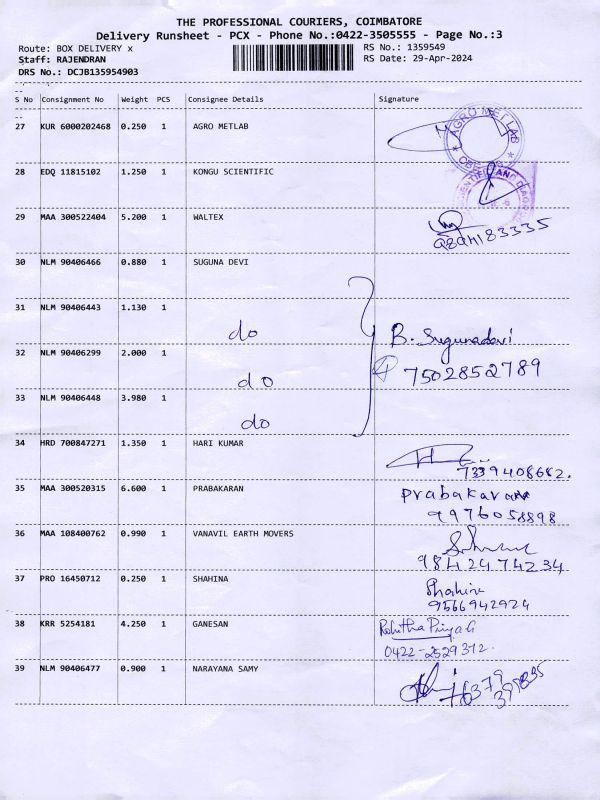 THE PROFESSIONAL COURIERS, COIMBATORE
Delivery Runsheet - PCX - Phone No.:0422-3505555 - Page No.:3
Route: BOX DELIVERY x
RS No.: 1359549
Staff: RAJENDRAN
RS Date: 29-Apr-2024
DRS No.: DCJB135954903
S No Consignment No Weight PCS Consignee Details Signature
27 KUR 6000202468 0.250 1 AGRO METLAB
AGRO MET LAB
28 EDQ 11815102 1.250 1 KONGU SCIENTIFIC
29 MAA 300522404 5.200 1 WALTEX
30 NLM 90406466 0.880 1 SUGUNA DEVI
31 NLM 90406443 1.130 1 do
B. Sugunadevi
32 NLM 90406299 2.000 1 do
7502852789
33 NLM 90406448 3.980 1 do
34 HRD 700847271 1.350 1 HARI KUMAR
7339408682.
35 MAA 300520315 6.600 1 PRABAKARAN
Prabakaran
9976058898
36 MAA 108400762 0.990 1 VANAVIL EARTH MOVERS
9842474234
37 PRO 16450712 0.250 1 SHAHINA
Shahina
9566942924
38 KRR 5254181 4.250 1 GANESAN
0422-2529312.
39 NLM 90406477 0.900 1 NARAYANA SAMY